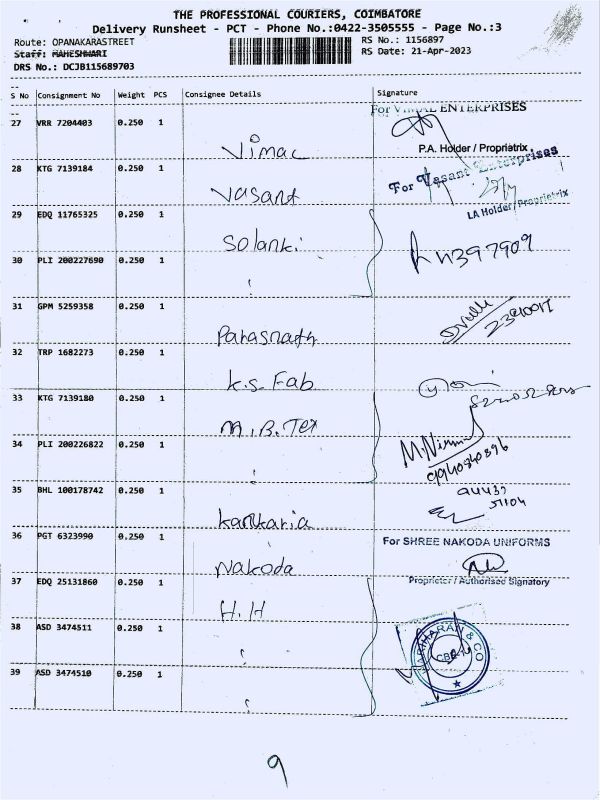 THE PROFESSIONAL COURIERS, COIMBATORE
Delivery Runsheet - PCT - Phone No.:0422-3505555 - Page No.:3
Route: OPANAKARASTREET
RS No.: 1156897
Staff: MAHESHWARI
RS Date: 21-Apr-2023
DRS No.: DCJB115689703
S No Consignment No Weight PCS Consignee Details Signature
For VIMAL ENTERPRISES
27 VRR 7204403 0.250 1 Vimal
P.A. Holder / Propritrix
28 KTG 7139184 0.250 1 Vasant
For Vasant Enterprises
LA Holder / Proprietrix
29 EDQ 11765325 0.250 1 Solanki
30 PLI 200227690 0.250 1
31 GPM 5259358 0.250 1 Parasnath
32 TRP 1682273 0.250 1 K.S. Fab
33 KTG 7139180 0.250 1 M.B. Tex
34 PLI 200226822 0.250 1
35 BHL 100178742 0.250 1 Kankaria
36 PGT 6323990 0.250 1 Nakoda
For SHREE NAKODA UNIFORMS
Proprietor / Authorised Signatory
37 EDQ 25131860 0.250 1 H.H
38 ASD 3474511 0.250 1
39 ASD 3474510 0.250 1
9